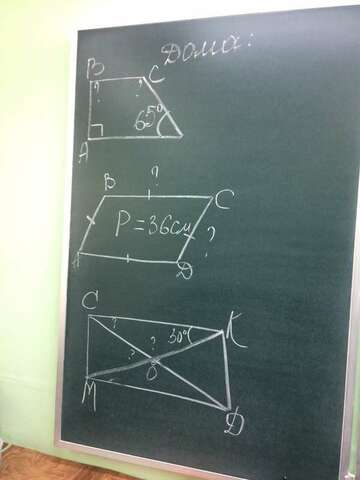 Дома:
B C
? ?
65°
A
?
B C
P = 36см
?
A D
C K
? 30°
? ?
O
M D